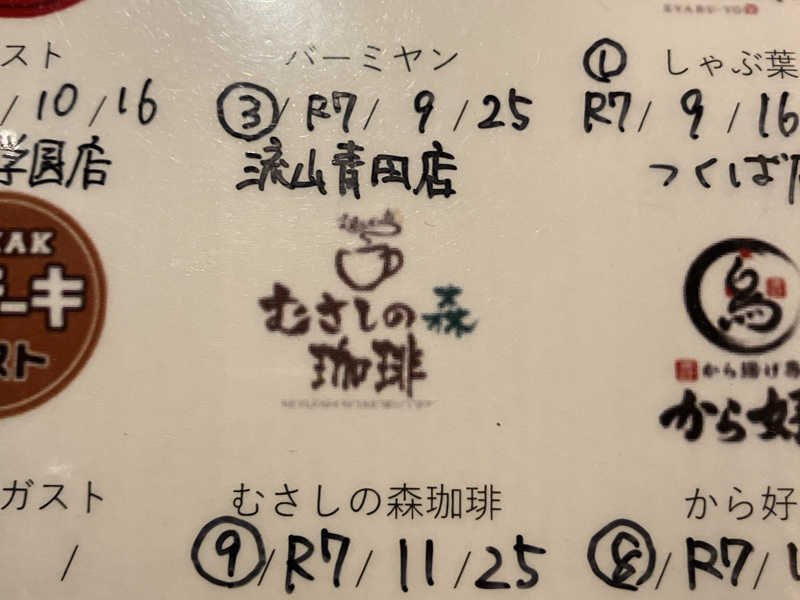 スト
バーミヤン
① しゃぶ葉
/10/16
③/R7/9/25
R7/9/16
学園店
流山青田店
つくば
むさしの森
珈琲
ーキ
スト
から揚げ専
から好
ガスト
むさしの森珈琲
から好
/
⑨/R7/11/25
⑧/R7/